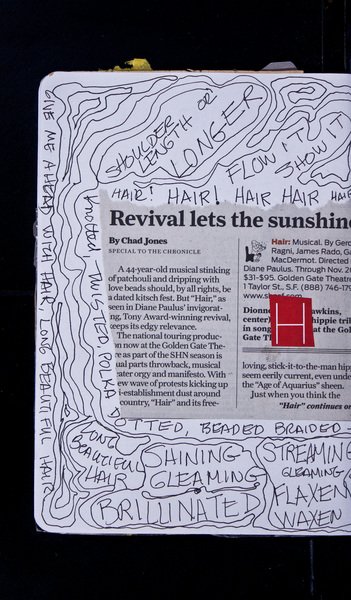 SHOULDER
LENGTH OR
LONGER
FLOW IT
SHOW IT
HAIR! HAIR! HAIR HAIR HAIR
GIVE ME A HEAD WITH HAIR, LONG BEAUTIFUL HAIR
KNOTTED TWISTED POLKA
Revival lets the sunshine
By Chad Jones
SPECIAL TO THE CHRONICLE
A 44-year-old musical stinking
of patchouli and dripping with
love beads should, by all rights, be
a dated kitsch fest. But “Hair,” as
seen in Diane Paulus’ invigorat-
ng, Tony Award-winning revival,
eeps its edgy relevance.
The national touring produc-
n now at the Golden Gate The-
re as part of the SHN season is
ual parts throwback, musical
eater orgy and manifesto. With
ew wave of protests kicking up
i-establishment dust around
country, “Hair” and its free-
Hair: Musical. By Gero
Ragni, James Rado, Ga
MacDermot. Directed
Diane Paulus. Through Nov. 2
$31-$95. Golden Gate Theatre
1 Taylor St., S.F. (888) 746-179
www.sh
Dionne awkins,
center hippie trib
in song at the Gol
Gate T
H
loving, stick-it-to-the-man hipp
seem eerily current, even unde
the “Age of Aquarius” sheen.
Just when you think the
“Hair” continues on
OTTED, BEADED BRAIDED
LONG
BEAUTIFUL
HAIR
SHINING
GLEAMING
BRILLINATED
STREAMING
GLEAMING
FLAXEN
WAXEN